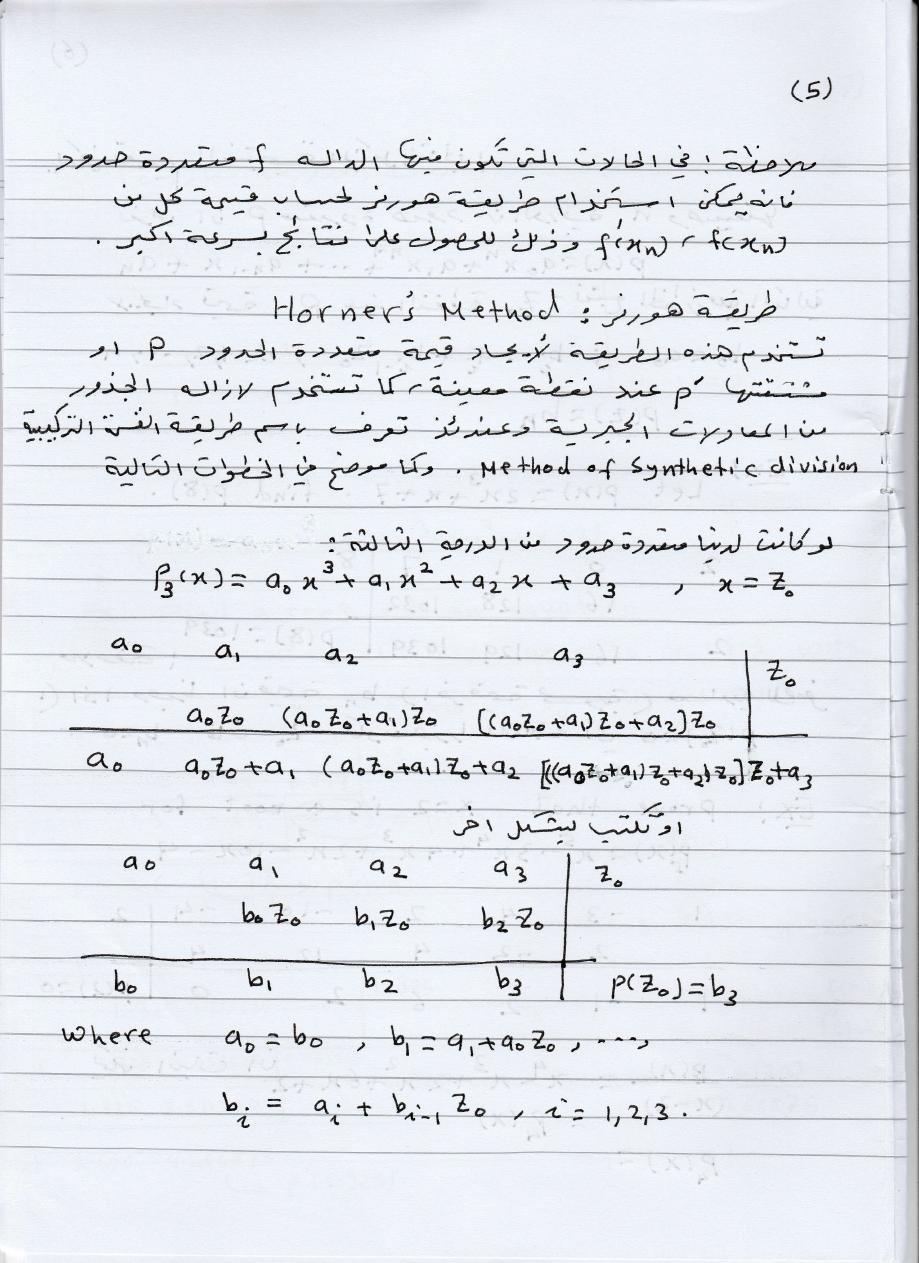 (5)
ملاحظة : في الحالات التي تكون فيها الداله f متعددة حدود
فانه يمكن استخدام طريقة هورنر لحساب قيمة كل من
f(xₙ) ، f'(xₙ) وذلك للحصول على نتائج بسرعة اكبر .
طريقة هورنر : Horner's Method
تستخدم هذه الطريقة لأيجاد قيمة متعددة الحدود P او
مشتقتها P' عند نقطة معينة ، كما تستخدم لازاله الجذور
من المعادلات الجبرية وعندئذ تعرف باسم طريقة القسمة التركيبية
Method of Synthetic division . وكما موضح في الخطوات التالية
لو كانت لدينا متعددة حدود من الدرجة الثالثة :
P₃(x) = a₀x³ + a₁x² + a₂x + a₃ , x = Z₀
a₀ a₁ a₂ a₃ Z₀
a₀Z₀ (a₀Z₀+a₁)Z₀ [(a₀Z₀+a₁)Z₀+a₂]Z₀
a₀ a₀Z₀+a₁ (a₀Z₀+a₁)Z₀+a₂ [((a₀Z₀+a₁)Z₀+a₂)Z₀]Z₀+a₃
او تكتب بشكل اخر
a₀ a₁ a₂ a₃ Z₀
b₀Z₀ b₁Z₀ b₂Z₀
b₀ b₁ b₂ b₃ P(Z₀)=b₃
where a₀ = b₀ , b₁ = a₁+a₀Z₀ , ....,
bᵢ = aᵢ + bᵢ₋₁ Z₀ , i = 1,2,3 .